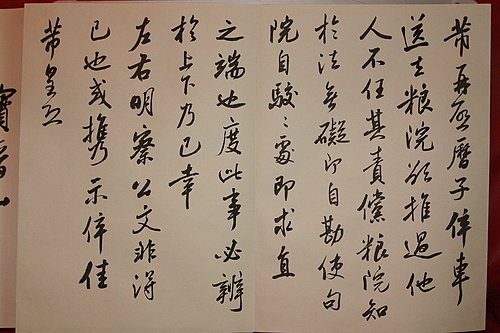 芾再啓曆子倅車
送士粮院欲推過他
人不任其責儻粮院知
於法無礙即自勘使句
院自駮〻處即求直
之端也度此事必辨
於上下乃已幸
左右明察公文非得
已也或攜示倅佳
芾皇恐
寶晉